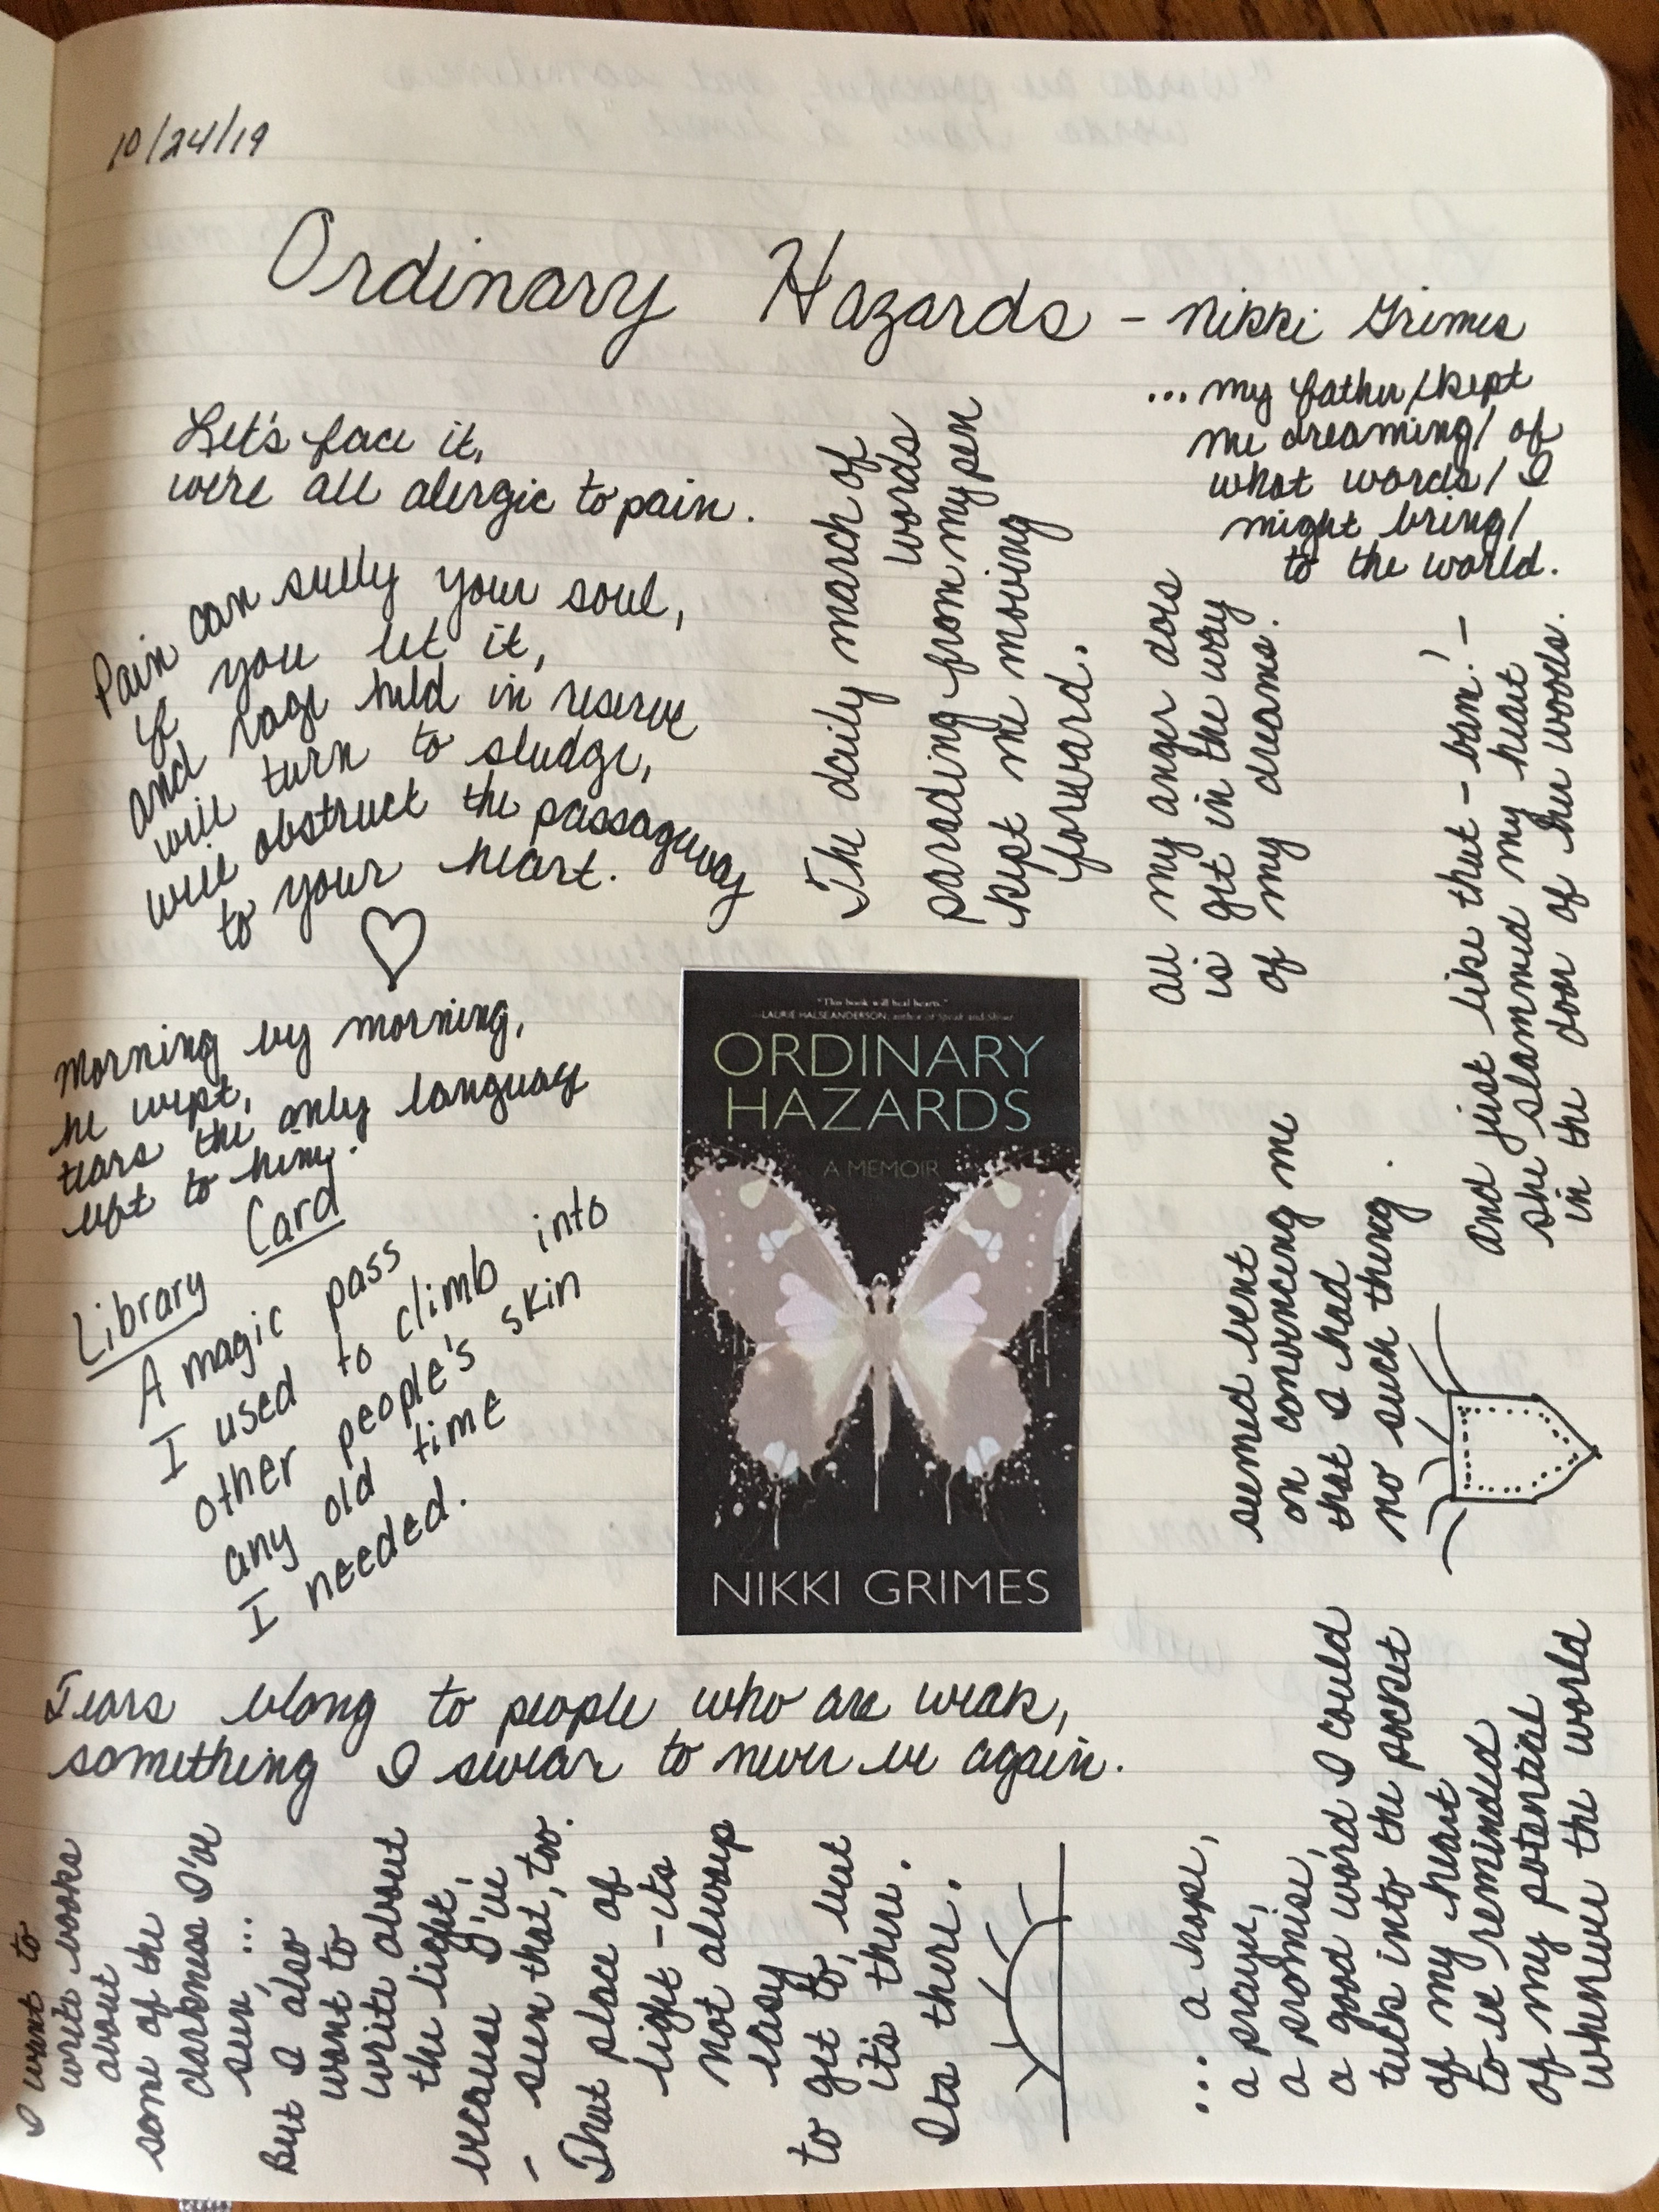 10/24/19
Ordinary Hazards - Nikki Grimes
Let's face it,
we're all alergic to pain.
Pain can sully your soul,
if you let it,
and rage held in reserve
will turn to sludge,
will obstruct the passageway
to your heart.
The daily march of
words
parading from my pen
kept me moving
forward.
...my father/kept
me dreaming/ of
what words/ I
might bring/
to the world.
all my anger does
is get in the way
of my dreams.
And just like that - bam! -
she slammed my heart
in the door of her words.
Morning by morning,
he wept,
tears the only language
left to him.
Library Card
A magic pass
I used to climb into
other people's skin
any old time
I needed.
"This book will heal hearts."
—LAURIE HALSE ANDERSON, author of Speak and Shout
ORDINARY
HAZARDS
A MEMOIR
NIKKI GRIMES
Tears belong to people who are weak,
something I swear to never be again.
I want to
write books
about
some of the
darkness I've
seen ...
But I also
want to
write about
the light,
because I've
- seen that, too.
That place of
light - its
not always
easy
to get to, but
its there.
Its there.
... a hope,
a prayer,
a promise,
a good word I could
tuck into the pocket
of my heart
to be reminded
of my potential
whenever the world
seemed bent
on convincing me
that I had
no such thing.